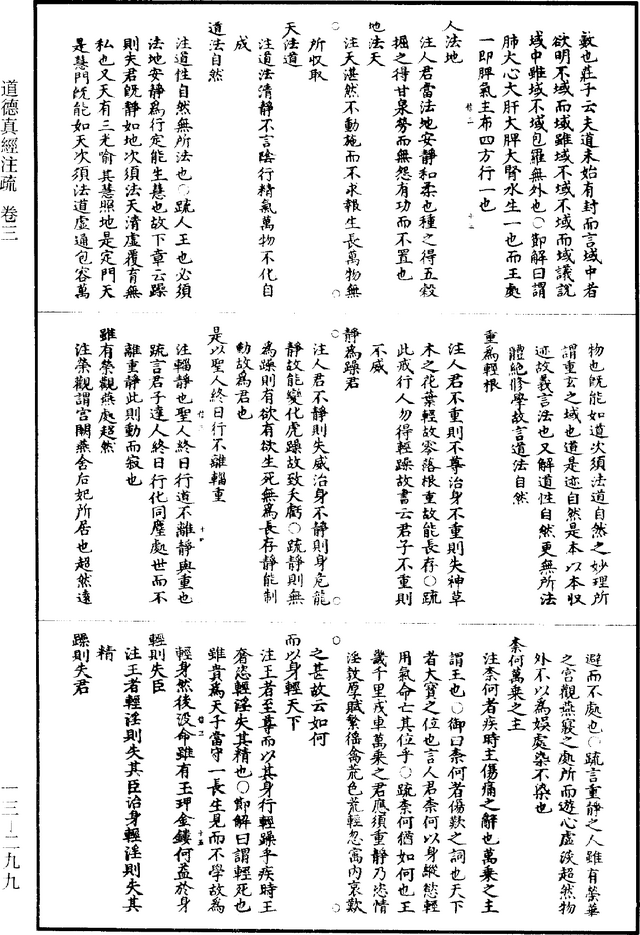 數也莊子云夫道未始有封而言域中者
欲明不域而域雖域不域不域而域議說
域中雖域不域包羅無外也○鄭解曰謂
肺火心大肝大脾大腎水生一也而王處
一即脾氣主布四方行一也
人法地
注人君當法地安靜和柔也種之得五穀
掘之得甘泉勞而無怨有功而不置也
地法天
注天湛然不動施而不求報生長萬物無
所收取
天法道
注道法清靜不言陰行精氣萬物不化自
成
道法自然
注道性自然無所法也○疏人王也必須
法地安靜為行定能生慧也故下章云躁
則失君既靜如地次須法天清虛覆育無
私也又天有三光喻其慧照地是定門天
是慧門既能如天次須法道虛通包容萬
物也既能如道次須法道自然之妙理所
謂重玄之域也道是迹自然是本以本收
迹故義言法也又解道性自然更無所法
體絕修學故言道法自然
重為輕根
注人君不重則不尊治身不重則失神草
木之花葉輕故零落根重故能長存○疏
此戒行人勿得輕躁故書云君子不重則
不威
靜為躁君
注人君不靜則失威治身不靜則身危龍
靜故能變化虎躁故致夭虧○疏靜則無
為躁則有欲有欲生死無為長存靜能制
動故為君也
是以聖人終日行不離輜重
注輜靜也聖人終日行道不離靜與重也
疏言君子達人終日行化同塵處世而不
離重靜此則動而寂也
雖有榮觀燕處超然
注榮觀謂宮闕燕舍后妃所居也超然遠
避而不處也○疏言重靜之人雖有榮華
之宮觀燕寢之處所而遊心虛淡超然物
外不以為娛處染不染也
柰何萬乘之主
注柰何者疾時主傷痛之解也萬乘之主
謂王也○御曰柰何者傷歎之詞也天下
者大寶之位也言人君柰何以身縱慾輕
用氣命亡其位乎○疏柰何猶如何也王
畿千里戎車萬乘之君應須重靜乃恣情
淫敦厚賦繁徭禽荒色荒輕忽宇內哀歎
之甚故云如何
而以身輕天下
注王者至尊而以其身行輕躁乎疾時王
奢恣輕淫失其精也○鄭解曰謂輕死也
雖貴為天子當守一長生見而不學故為
輕身然後沒命雖有玉珥金鏤何益於身
輕則失臣
注王者輕淫則失其臣治身輕淫則失其
精
躁則失君
道德真經注疏 卷三
一三—二九九